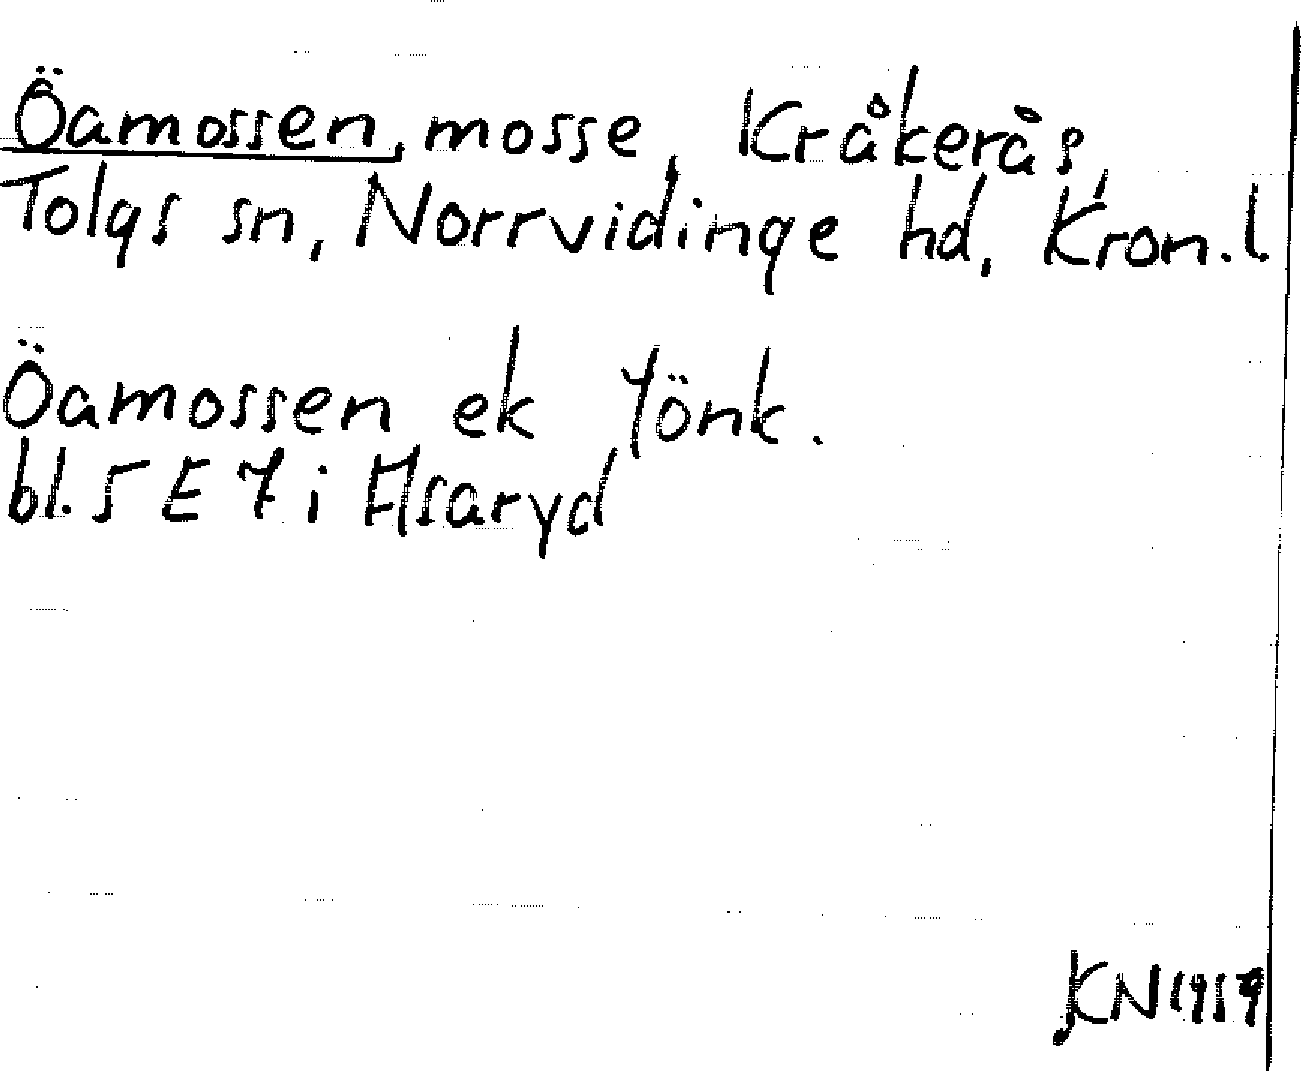 Öamossen, mosse, Kråkerås,
Tolgs sn, Norrvidinge hd, Kron. l.
Öamossen ek Jönk.
bl. 5 E 7 i Asaryd
KN